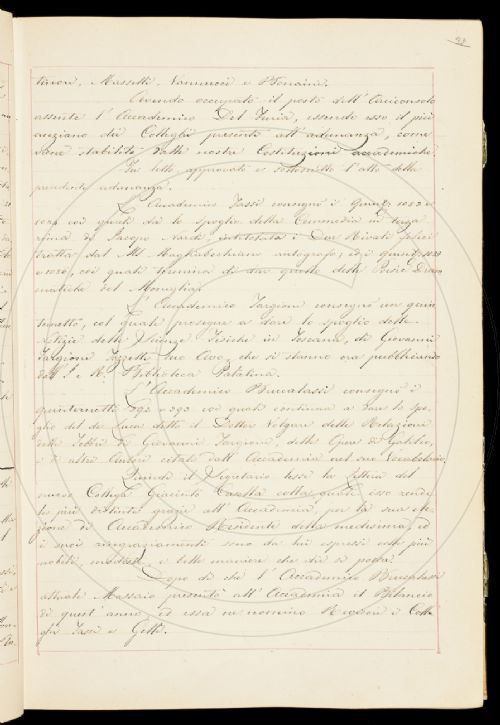 Masselli, Vannucci e
Avendo occupato il posto dell' Arciconsolo
assente l' Accademico Del Furia, essendo esso il più
anziano dei Colleghi presenti all' adunanza, come
viene stabilito dalle nostre Costituzioni accademiche.
Fu letto, approvato e sottoscritto l' atto della
precedente adunanza.
L' Accademico Tassi consegnò i Quint.
coi quali dà lo spoglio della Commedia in terza
rima di Jacopo Nardi intitolata i Due Rivali felici
tratta dal MS. Magliabechiano autografo; ed i quint. 1029
e 1030, coi quali termina di dar quello delle Poesie Dram
matiche del Moniglia.
L' Accademico Targioni consegnò un quin
ternetto, col quale prosegue a dare lo spoglio delle
Notizie delle Scienze Fisiche in Toscana, di Giovanni
Targioni Tozzetti suo Avo, che si stanno ora pubblicando
dall' I. e R. Biblioteca Palatina.
L' Accademico Brucalassi consegnò i
quinternetti 392 e 393 coi quali continua a dare lo spo
glio del de Luca detto il Dottor Volgare, delle Relazione
delle Febbri di Giovanni Targioni, delle Opere di Galileo,
e di altri Autori citati dall' Accademia nel suo Vocabolario.
Quindi il Segretario lesse la lettera del
nuovo Collega Giacinto colla quale esso rende
le più distinte grazie all' Accademia, per la sua ele
zione di Accademico Residente della medesima, ed
i suoi ringraziamenti sono da lui espressi colle più
nobili, modeste, e belle maniere che dir si possa.
Dopo di che l' Accademico Brucalassi
attuale Massaio presentò all' Accademia il Bilancio
di quest' anno, ed essa ne nominò Revisori i Colle
ghi Tassi e Gelli.